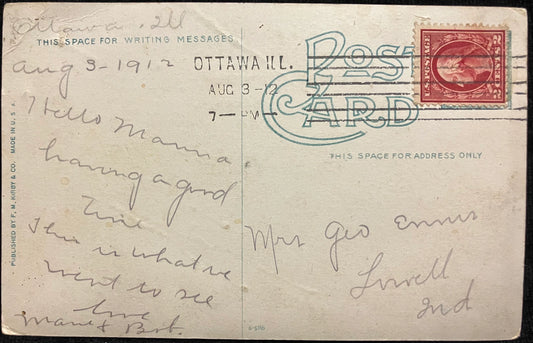 Ottawa, Ill
THIS SPACE FOR WRITING MESSAGES
Aug 3-1912
Hello Mamma
having a good
time
This is what we
went to see
love
Marie & Bob.
PUBLISHED BY F. M. KIRBY & CO. MADE IN U.S.A.
OTTAWA ILL.
AUG 3-12
7-PM-
POST
CARD
U.S. POSTAGE
2 CENTS 2
THIS SPACE FOR ADDRESS ONLY
Mrs Geo Ennis
Lowell
Ind